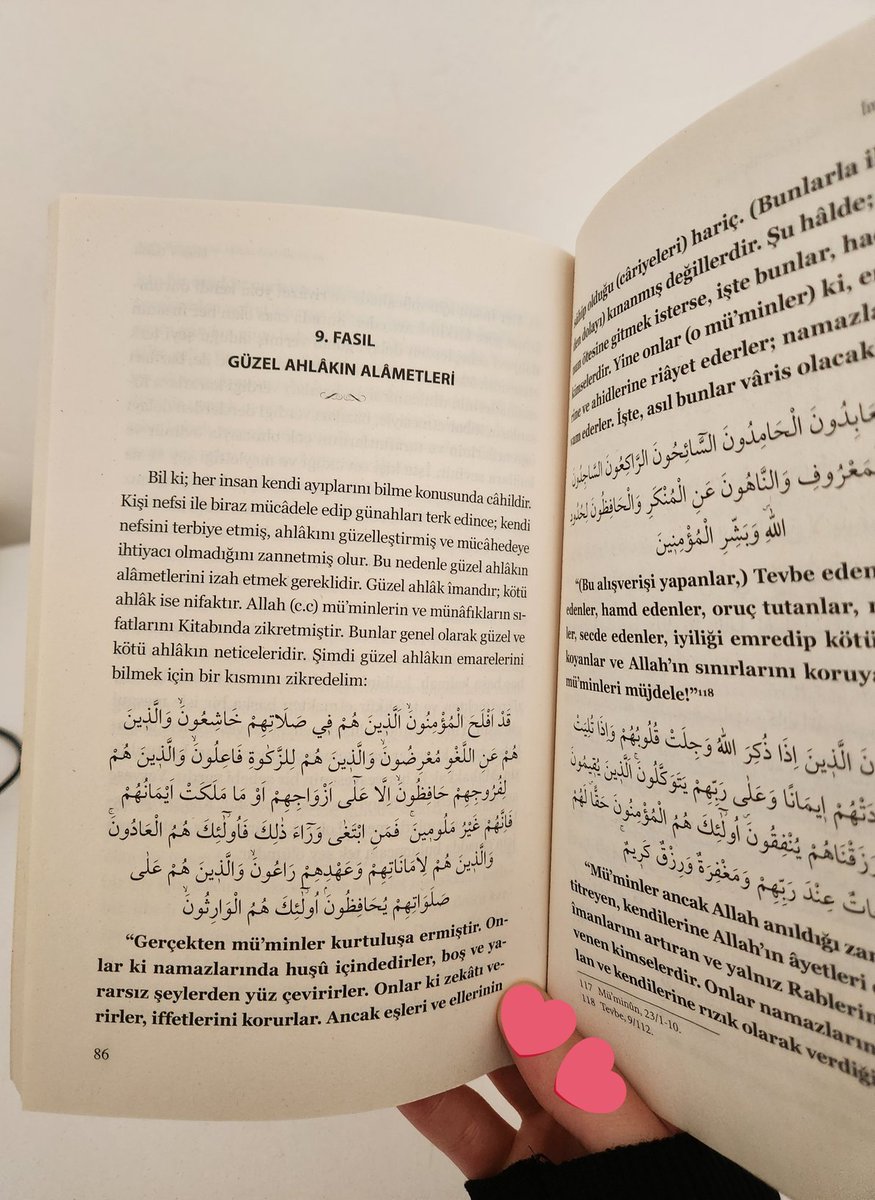 9. FASIL
GÜZEL AHLÂKIN ALÂMETLERİ
Bil ki; her insan kendi ayıplarını bilme konusunda câhildir.
Kişi nefsi ile biraz mücâdele edip günahları terk edince; kendi
nefsini terbiye etmiş, ahlâkını güzelleştirmiş ve mücâhedeye
ihtiyacı olmadığını zannetmiş olur. Bu nedenle güzel ahlâkın
alâmetlerini izah etmek gereklidir. Güzel ahlâk îmandır; kötü
ahlak ise nifaktır. Allah (c.c) mü’minlerin ve münâfıkların sı-
fatlarını Kitabında zikretmiştir. Bunlar genel olarak güzel ve
kötü ahlâkın neticeleridir. Şimdi güzel ahlâkın emarelerini
bilmek için bir kısmını zikredelim:
قَدْ اَفْلَحَ الْمُؤْمِنُونَۙ اَلَّذٖينَ هُمْ فٖي صَلَاتِهِمْ خَاشِعُونَۙ وَالَّذٖينَ
هُمْ عَنِ اللَّغْوِ مُعْرِضُونَۙ وَالَّذٖينَ هُمْ لِلزَّكٰوةِ فَاعِلُونَۙ وَالَّذٖينَ هُمْ
لِفُرُوجِهِمْ حَافِظُونَۙ اِلَّا عَلٰٓى اَزْوَاجِهِمْ اَوْ مَا مَلَكَتْ اَيْمَانُهُمْ
فَاِنَّهُمْ غَيْرُ مَلُومٖينَۚ فَمَنِ ابْتَغٰى وَرَٓاءَ ذٰلِكَ فَاُولٰٓئِكَ هُمُ الْعَادُونَۚ
وَالَّذٖينَ هُمْ لِاَمَانَاتِهِمْ وَعَهْدِهِمْ رَاعُونَۙ وَالَّذٖينَ هُمْ عَلٰى
صَلَوَاتِهِمْ يُحَافِظُونَۢ اُولٰٓئِكَ هُمُ الْوَارِثُونَۙ
“Gerçekten mü’minler kurtuluşa ermiştir. On-
lar ki namazlarında huşû içindedirler, boş ve ya-
rarsız şeylerden yüz çevirirler. Onlar ki zekâtı ve-
rirler, iffetlerini korurlar. Ancak eşleri ve ellerinin
86
sâhip olduğu (câriyeleri) hariç. (Bunlarla
den dolayı) kınanmış değillerdir. Şu hâlde;
nun ötesine gitmek isterse, işte bunlar,
kimselerdir. Yine onlar (o mü’minler) ki,
rine ve ahidlerine riâyet ederler;
vam ederler. İşte, asıl bunlar vâris olacak
الْحَامِدُونَ السَّٓائِحُونَ الرَّاكِعُونَ السَّاجِدُونَ
وَالنَّاهُونَ عَنِ الْمُنْكَرِ وَالْحَافِظُونَ لِحُدُودِ
اللّٰهِ وَبَشِّرِ الْمُؤْمِنٖينَ
“(Bu alışverişi yapanlar,) Tevbe
edenler, hamd edenler, oruç tutanlar,
ler, secde edenler, iyiliği emredip
koyanlar ve Allah’ın sınırlarını
mü’minleri müjdele!”¹¹⁸
الَّذٖينَ اِذَا ذُكِرَ اللّٰهُ وَجِلَتْ قُلُوبُهُمْ وَاِذَا تُلِيَتْ
اٖيمَانًا وَعَلٰى رَبِّهِمْ يَتَوَكَّلُونَۚ اَلَّذٖينَ يُقٖيمُونَ
يُنْفِقُونَۜ اُولٰٓئِكَ هُمُ الْمُؤْمِنُونَ حَقًّاۜ لَهُمْ
عِنْدَ رَبِّهِمْ وَمَغْفِرَةٌ وَرِزْقٌ كَرٖيمٌۚ
“Mü’minler ancak Allah anıldığı
titreyen, kendilerine Allah’ın âyetleri
îmanlarını artıran ve yalnız
venen kimselerdir. Onlar
lan ve kendilerine rızık olarak verdiği
117 Mü’minûn, 23/1-10.
118 Tevbe, 9/112.